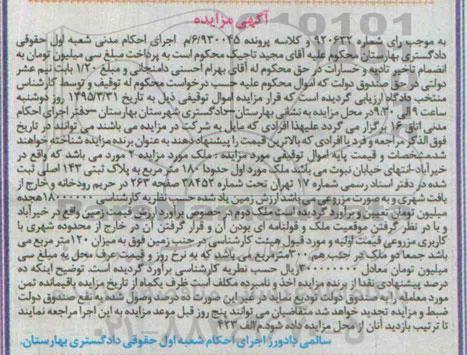 آگهی مزایده
به موجب رای شماره ۹۲۰۶۳۲ کلاسه پرونده ۶/۹۳۰۰۴۵/م اجرای احکام مدنی شعبه اول حقوقی
دادگستری بهارستان محکوم علیه آقای مجید تاجیک محکوم است به پرداخت مبلغ سی میلیون تومان به
انضمام تاخیر تادیه و خسارات در حق محکوم له آقای بهرام احسنی دامنجانی و مبلغ ۱/۲۰۰ بابت نیم عشر
دولتی در حق صندوق دولت که اموال محکوم علیه حسب درخواست محکوم له توقیف و توسط کارشناس
منتخب دادگاه ارزیابی گردیده است که قرار مزایده اموال توقیفی ذیل به تاریخ ۱۳۹۵/۳/۳۱ روز دوشنبه
ساعت ۹ الی ۹.۳۰ در محل مزایده به نشانی بهارستان–دادگستری شهرستان بهارستان –دفتر اجرای احکام
مدنی اتاق ۱۲ برگزار می گردد علیهذا افرادی که مایل به شرکت در مزایده می باشند می توانند در تاریخ
فوق الذکر مراجعه و فرد یا افرادی که بالاترین قیمت را پیشنهاد دهند به عنوان برنده مزایده شناخته خواهند
شد. مشخصات و قیمت پایه اموال توقیفی مورد مزایده . ملک مورد مزایده ۲ مورد می باشد که واقع در
خیرآباد-انتهای خیابان نبوت می باشد ملک مورد اول حدودا ۱۸۰ متر مربع به پلاک ثبتی ۱۴۳ اصلی ثبت
شده در دفتر اسناد رسمی شماره ۱۷ تهران تحت شماره ۳۸۴۵۲ صفحه ۲۶۳ در حریم رودخانه و خارج از
بافت شهری و به صورت مزروعی می باشد ارزش زمین یاد شده
میلیون تومان تعیین و برآورد گردیده است ملک دوم در خصوص برآورد ارزش قیمت زمین واقع در خیرآباد
و با در نظر گرفتن موقعیت ملک و قولنامه ای بودن آن و قرار گرفتن آن در خارج از محدوده شهری با
کاربری مزروعی قیمت اولیه و مورد قبول هیئت کارشناسی در جنب زمین فوق به میزان ۱۲۰ متر مربع می
باشد جمعا دو ملک در جنب هم ۳۰۰ مترمربع می باشد که به نرخ روز و قیمت عرف محل به مبلغ سی
میلیون تومان معادل ۳۰۰۰۰۰۰۰۰ ریال حسب نظریه کارشناسی برآورد گردیده است. توضیح اینکه ده
درصد پیشنهادی نقدا از برنده مزایده اخذ و نامبرده مکلف است ظرف یکماه از تاریخ مزایده باقیمانده ثمن
مورد معامله را به صندوق دولت تودیع نماید در غیر این صورت ده درصد وصول شده به نفع صندوق دولت
ضبط و مزایده تجدید خواهد شد متقاضیان می توانند پنج روز قبل موعد مزایده به این اجرا مراجعه نمایند
تا ترتیب بازدید آنان از محل مزایده داده شود م الف ۴۲۳
سالمی دادورز اجرای احکام شعبه اول حقوقی دادگستری بهارستان.